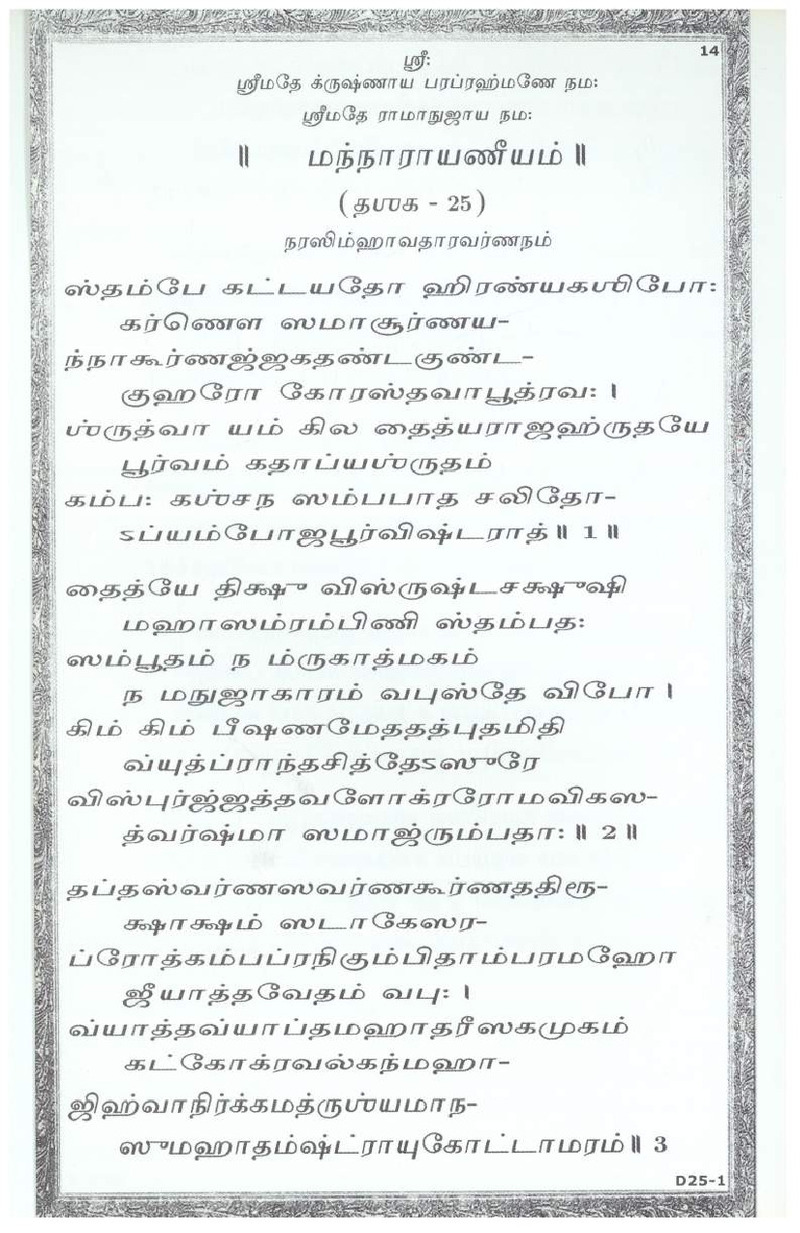 14
ஸ்ரீ:
ஸ்ரீமதே க்ருஷ்ணாய பரப்ரஹ்மணே நம:
ஸ்ரீமதே ராமாநுஜாய நம:
॥ மந்நாராயணீயம் ॥
(தஶக - 25)
நரஸிம்ஹாவதாரவர்ணநம்
ஸ்தம்பே கட்டயதோ ஹிரண்யகஶிபோ:
கர்ணௌ ஸமாசூர்ணய-
ந்நாகூர்ணஜ்ஜகதண்டகுண்ட-
குஹரோ கோரஸ்தவாபூத்ரவ: ।
ஶ்ருத்வா யம் கில தைத்யராஜஹ்ருதயே
பூர்வம் கதாப்யஶ்ருதம்
கம்ப: கஶ்சந ஸம்பபாத சலிதோ-
ऽப்யம்போஜபூர்விஷ்டராத் ॥ 1 ॥
தைத்யே திக்ஷு விஸ்ருஷ்டசக்ஷுஷி
மஹாஸம்ரம்பிணி ஸ்தம்பத:
ஸம்பூதம் ந ம்ருகாத்மகம்
ந மநுஜாகாரம் வபுஸ்தே விபோ ।
கிம் கிம் பீஷணமேததத்புதமிதி
வ்யுத்ப்ராந்தசித்தேऽஸுரே
விஸ்புர்ஜ்ஜத்தவளோக்ரரோமவிகஸ-
த்வர்ஷ்மா ஸமாஜ்ரும்பதா: ॥ 2 ॥
தப்தஸ்வர்ணஸவர்ணகூர்ணததிரூ-
க்ஷாக்ஷம் ஸடாகேஸர-
ப்ரோத்கம்பப்ரநிகும்பிதாம்பரமஹோ
ஜீயாத்தவேதம் வபு: ।
வ்யாத்தவ்யாப்தமஹாதரீஸகமுகம்
கட்கோக்ரவல்கந்மஹா-
ஜிஹ்வாநிர்க்கமத்ருஶ்யமாந-
ஸுமஹாதம்ஷ்ட்ராயுகோட்டாமரம் ॥ 3
D25-1